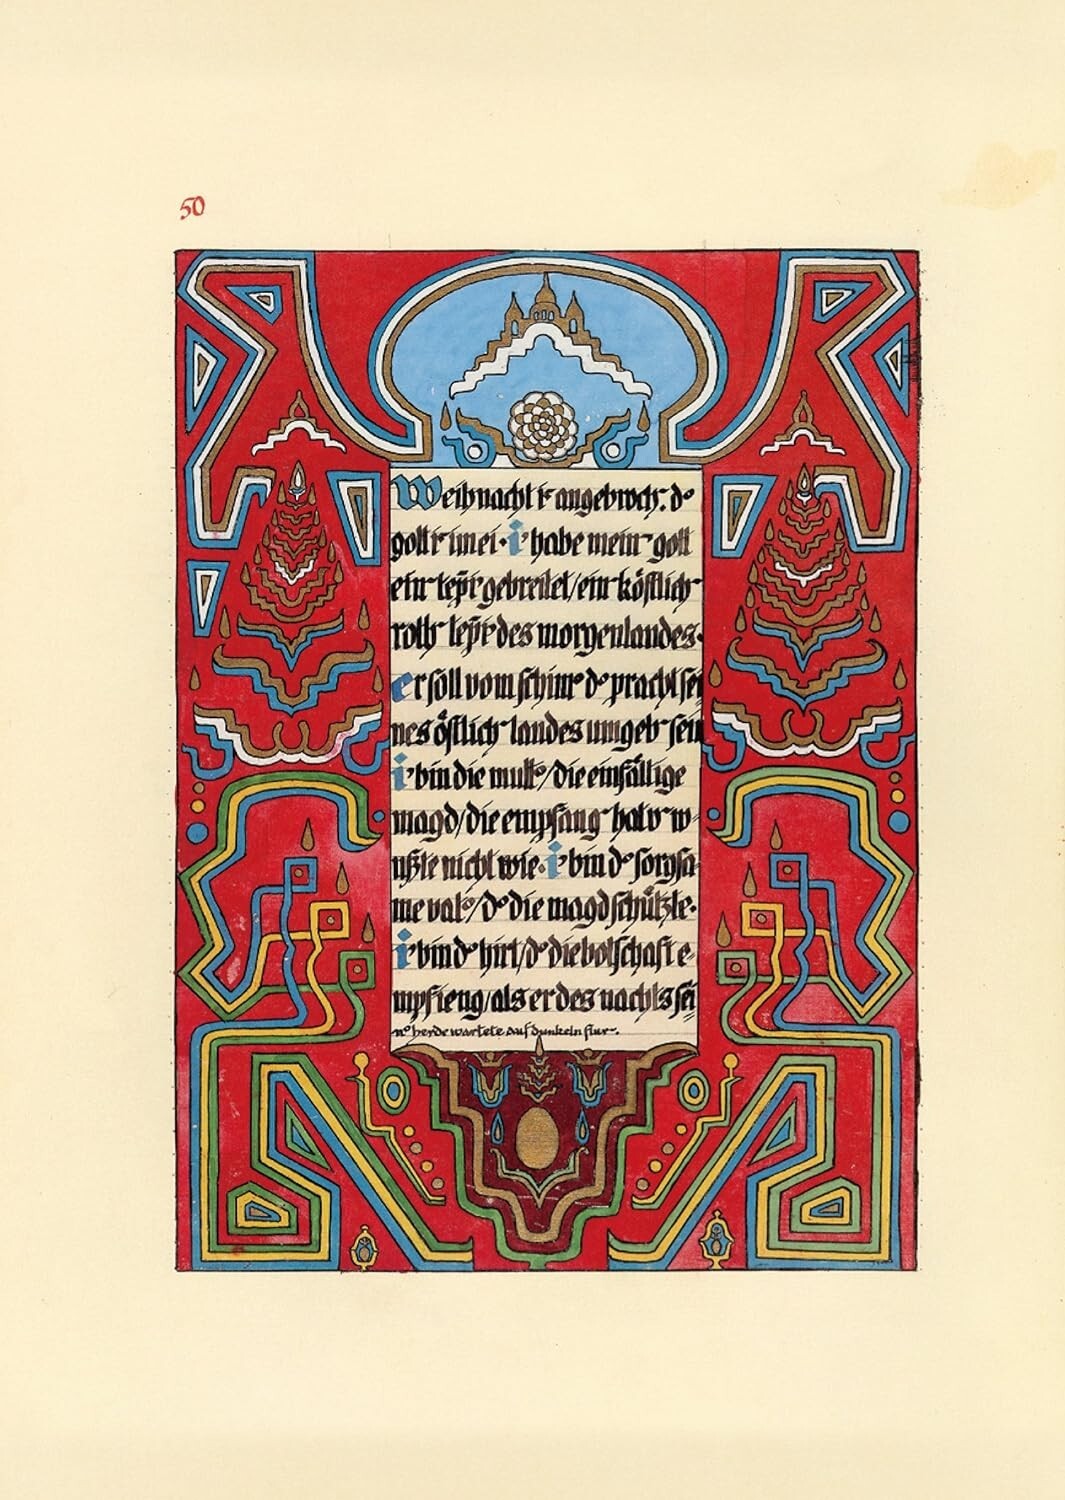 50
Weihnacht ist angebroch. d'
gott ist im ei. i' habe mein' gott
ein' tepp' gebreitet/ein' köstlich'
roth' tepp' des morgenlandes.
er soll vom schim' d' pracht sei
nes östlich' landes umgeb' sein
i' bin die mutt'/die einfältige
magd/die empfang' hat u' w-
ußte nicht wie. i' bin d' sorgsa-
me vat'/d' die magd schützte.
i' bin d' hirt/d' die botschaft e-
mpfieng/als er des nachts sei
n' herde wartete auf dunkeln flur'.